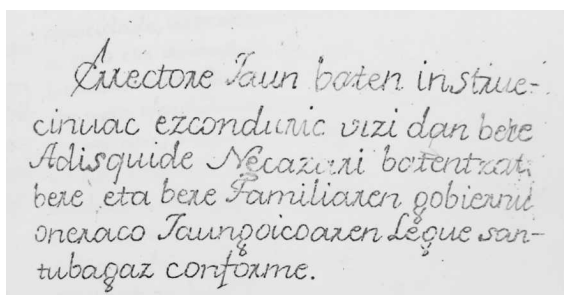 Errectore Jaun baten instrue-
cinuac ezconduric vizi dan bere
Adisquide Necazari batentzat,
bere eta bere Familiaren gobiernu
oneraco Jaungoicoaren Legue san-
tubagaz conforme.